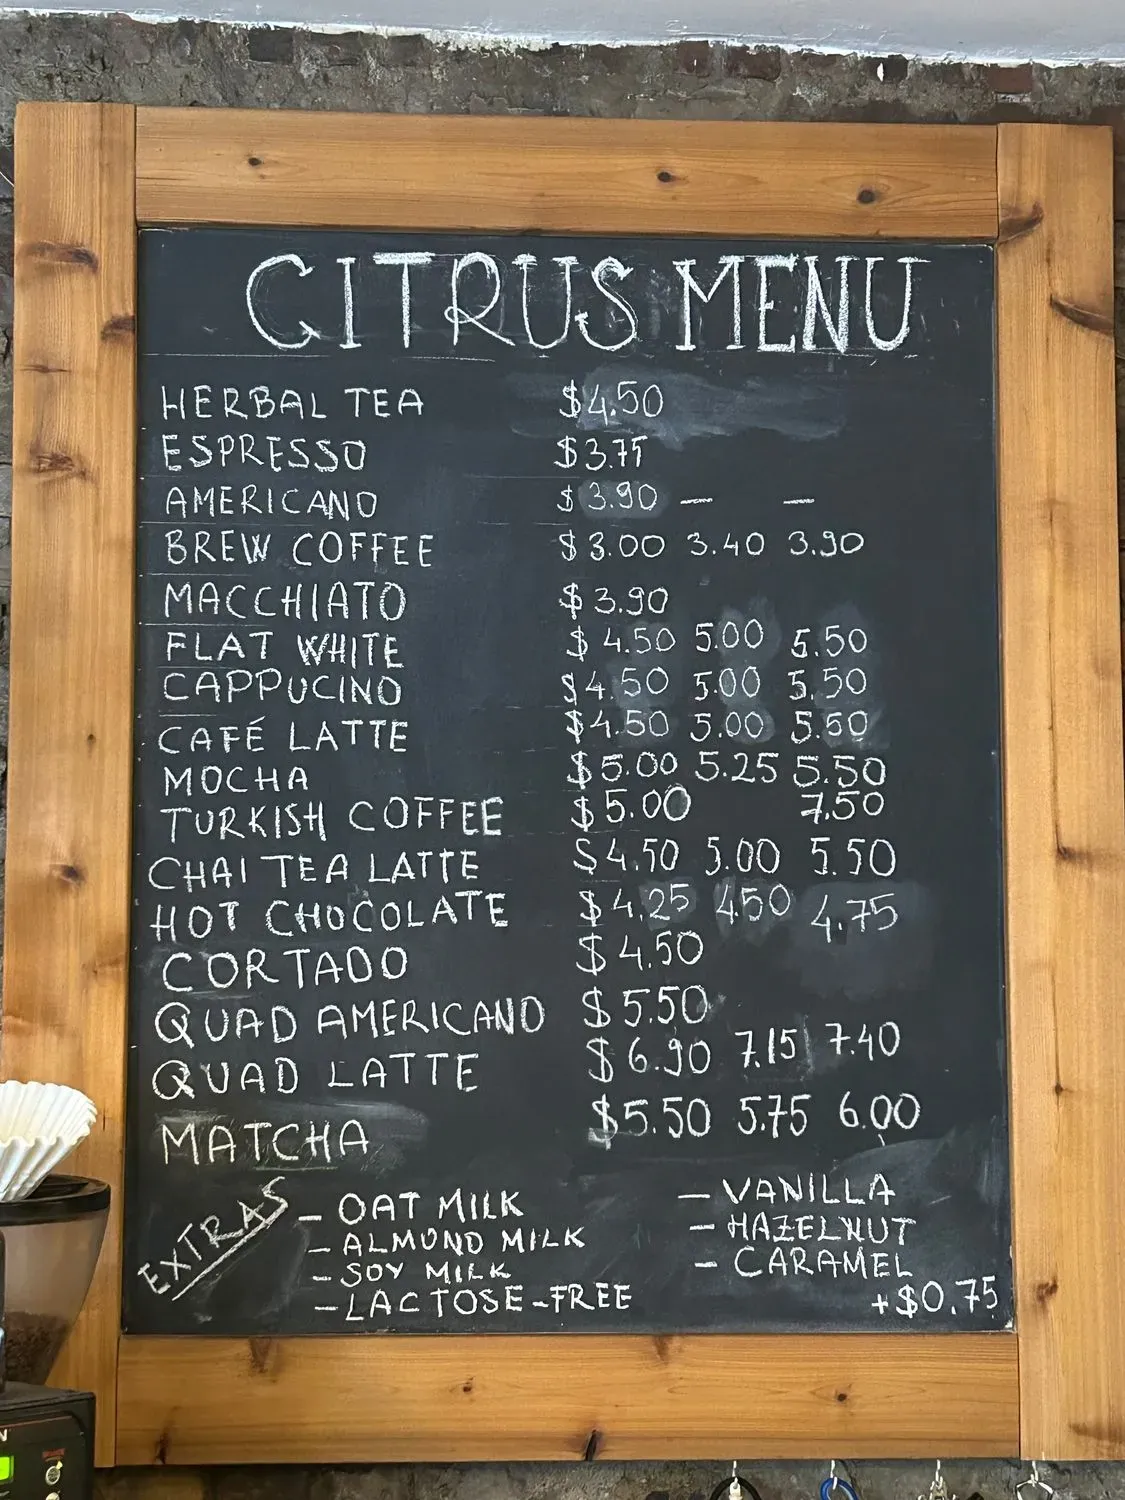 CITRUS MENU
HERBAL TEA $4.50
ESPRESSO $3.75
AMERICANO $3.90 — —
BREW COFFEE $3.00 3.40 3.90
MACCHIATO $3.90
FLAT WHITE $4.50 5.00 5.50
CAPPUCINO $4.50 5.00 5.50
CAFÉ LATTE $4.50 5.00 5.50
MOCHA $5.00 5.25 5.50
TURKISH COFFEE $5.00 7.50
CHAI TEA LATTE $4.50 5.00 5.50
HOT CHOCOLATE $4.25 4.50 4.75
CORTADO $4.50
QUAD AMERICANO $5.50
QUAD LATTE $6.90 7.15 7.40
MATCHA $5.50 5.75 6.00
EXTRAS
— OAT MILK
— ALMOND MILK
— SOY MILK
— LACTOSE-FREE
— VANILLA
— HAZELNUT
— CARAMEL
+$0.75